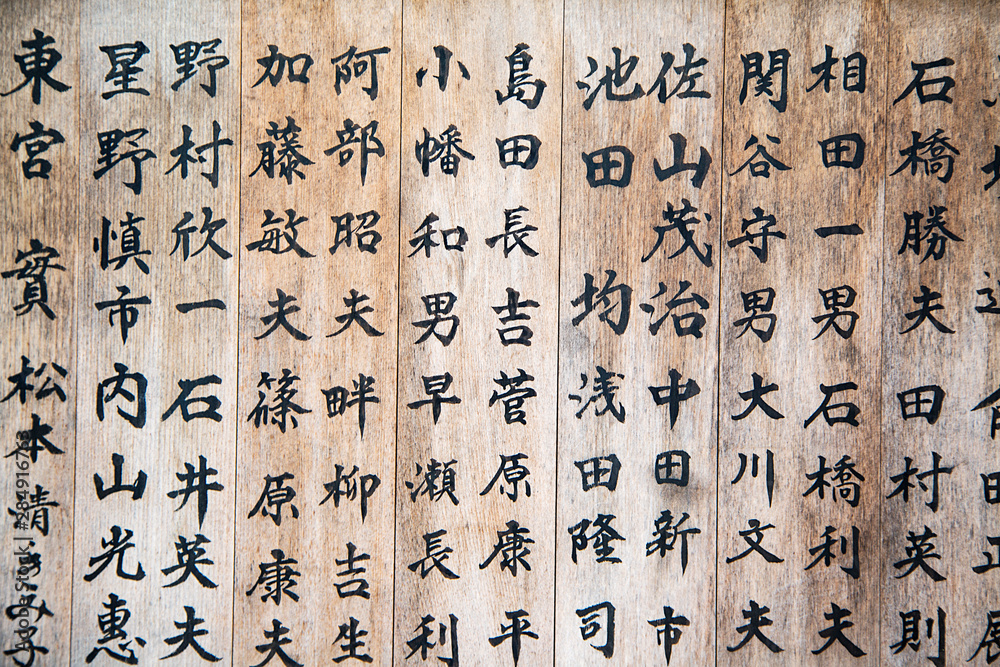 石橋勝夫 田村英則
相田一男 石橋利夫
関谷守男 大川文夫
佐山茂治 中田新市
池田均 浅田隆司
島田長吉 菅原康平
小幡和男 早瀬長利
阿部昭夫 畔柳吉生
加藤敏夫 篠原康夫
野村欣一 石井英夫
星野慎市 内山光惠
東宮 實 松本
Adobe Stock | #284916763